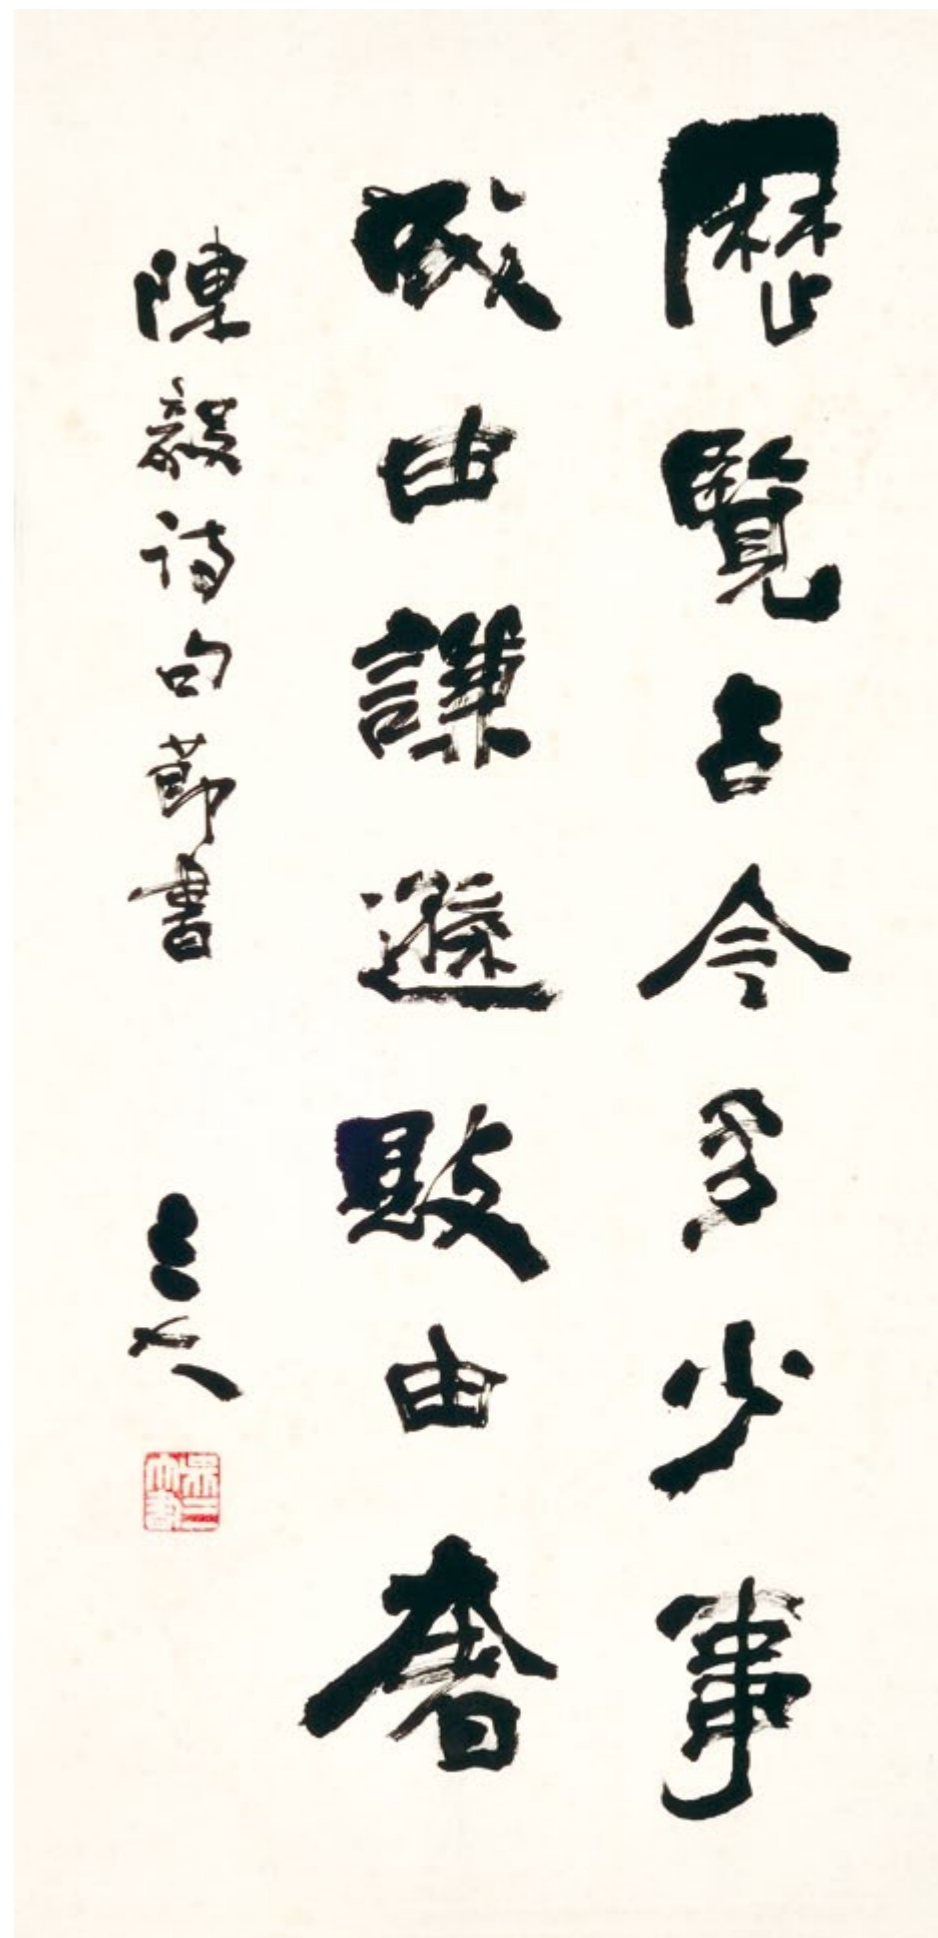 歷覽古今多少事
成由謙遜敗由奢
陳毅詩句節書
三大
吳三大書